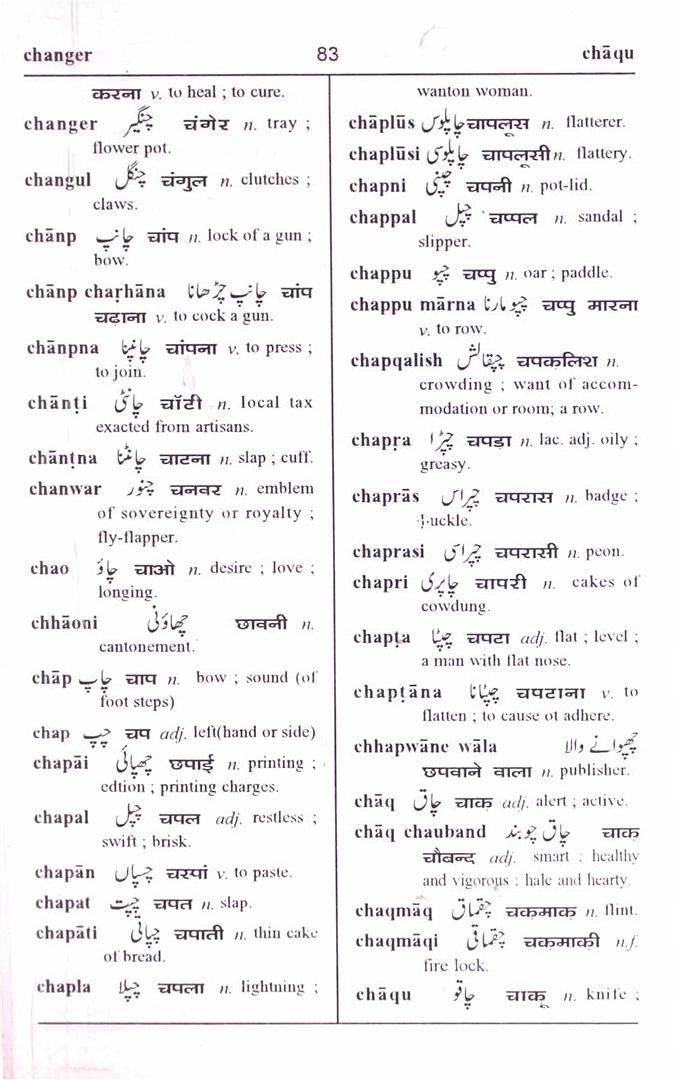 changer 83 chāqu
करना v. to heal ; to cure.
changer چنگیر चंगेर n. tray ;
flower pot.
changul چنگل चंगुल n. clutches ;
claws.
chānp چانپ चांप n. lock of a gun ;
bow.
chānp chaṛhāna چانپ چڑھانا चांप
चढ़ाना v. to cock a gun.
chānpna چانپنا चांपना v. to press ;
to join.
chānṭi چانٹی चॉटी n. local tax
exacted from artisans.
chānṭna چانٹنا चाटना n. slap ; cuff.
chanwar چنور चनवर n. emblem
of sovereignty or royalty ;
fly-flapper.
chao چاؤ चाओ n. desire ; love ;
longing.
chhāoni چھاؤنی छावनी n.
cantonement.
chāp چاپ चाप n. bow ; sound (of
foot steps)
chap چپ चप adj. left(hand or side)
chapāi چھپائی छपाई n. printing ;
edtion ; printing charges.
chapal چپل चपल adj. restless ;
swift ; brisk.
chapān چسپاں चस्पां v. to paste.
chapat چپت चपत n. slap.
chapāti چپاتی चपाती n. thin cake
of bread.
chapla چپلا चपला n. lightning ;
wanton woman.
chāplūs چاپلوس चापलूस n. flatterer.
chaplūsi چاپلوسی चापलूसी n. flattery.
chapni چپنی चपनी n. pot-lid.
chappal چپل चप्पल n. sandal ;
slipper.
chappu چپو चप्पु n. oar ; paddle.
chappu mārna چپو مارنا चप्पु मारना
v. to row.
chapqalish چپقلش चपक़लिश n.
crowding ; want of accom-
modation or room; a row.
chapṛa چپڑا चपड़ा n. lac. adj. oily ;
greasy.
chaprās چپراس चपरास n. badge ;
buckle.
chaprasi چپراسی चपरासी n. peon.
chapri چاپری चापरी n. cakes of
cowdung.
chapṭa چپٹا चपटा adj. flat ; level ;
a man with flat nose.
chapṭāna چپٹانا चपटाना v. to
flatten ; to cause ot adhere.
chhapwāne wāla چھپوانے والا
छपवाने वाला n. publisher.
chāq چاق चाक़ adj. alert ; active.
chāq chauband چاق چوبند चाक़
चौवन्द adj. smart : healthy
and vigorous : hale and hearty.
chaqmāq چقماق चकमाक n. flint.
chaqmāqi چقماقی चकमाकी n.f.
fire lock.
chāqu چاقو चाकू n. knife ;